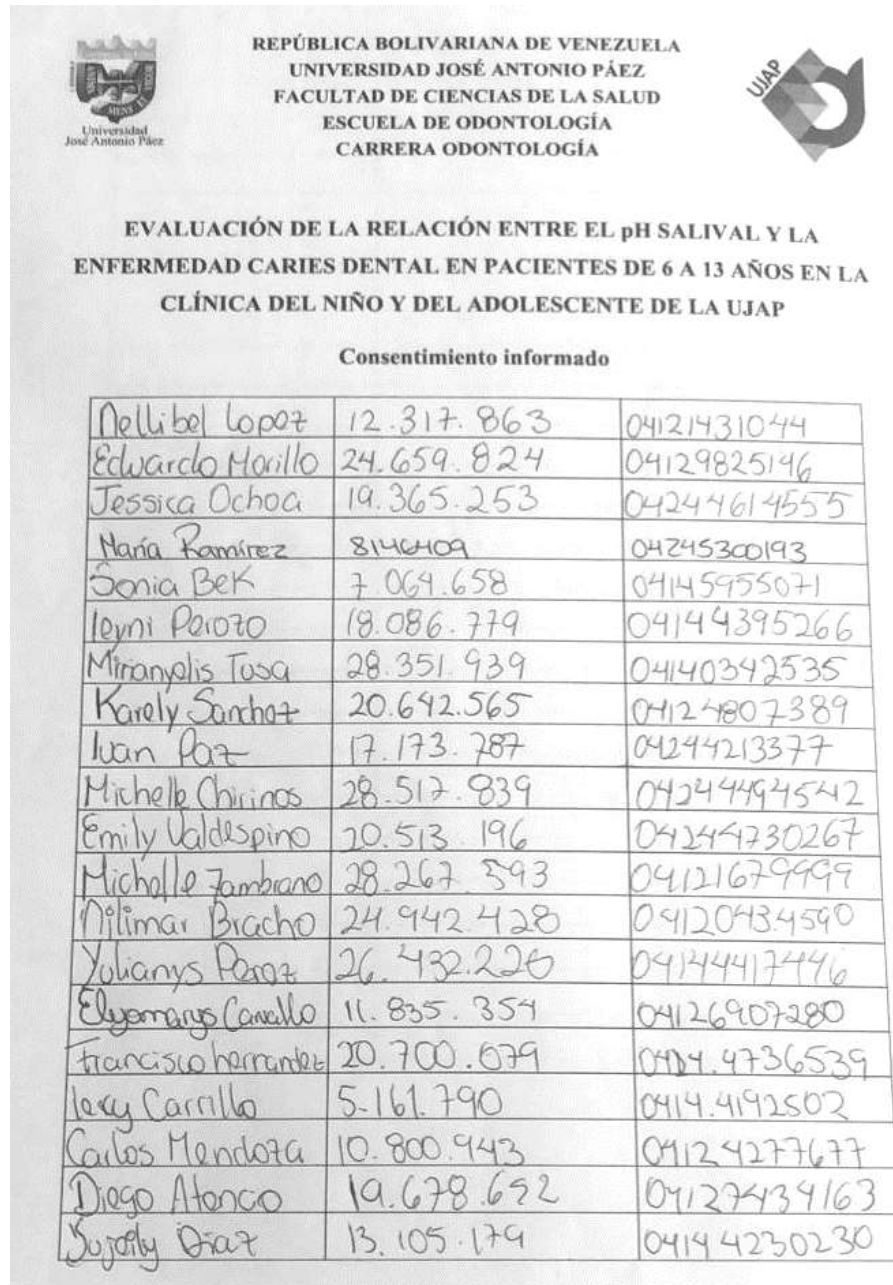 REPÚBLICA BOLIVARIANA DE VENEZUELA
UNIVERSIDAD JOSÉ ANTONIO PÁEZ
FACULTAD DE CIENCIAS DE LA SALUD
ESCUELA DE ODONTOLOGÍA
CARRERA ODONTOLOGÍA
Universidad
José Antonio Páez
UJAP
EVALUACIÓN DE LA RELACIÓN ENTRE EL pH SALIVAL Y LA
ENFERMEDAD CARIES DENTAL EN PACIENTES DE 6 A 13 AÑOS EN LA
CLÍNICA DEL NIÑO Y DEL ADOLESCENTE DE LA UJAP
Consentimiento informado
Nellibel Lopez 12.317.863 04121431044
Eduardo Morillo 24.659.824 04129825146
Jessica Ochoa 19.365.253 04244614555
María Ramírez 8146409 04245300193
Sonia Bek 7.064.658 04145955071
Leyni Perozo 18.086.779 04144395266
Mirianyelis Tosa 28.351.939 04140342535
Karely Sanchez 20.642.565 04124807389
Ivan Paz 17.173.787 04244213377
Michelle Chirinos 28.517.839 04244494542
Emily Valdespino 20.513.196 04244730267
Michelle Zambrano 28.267.593 04121679999
Nilimar Bracho 24.942.428 04120434590
Yulianys Perez 26.432.226 04144417446
Carvallo 11.835.354 04126907280
Francisco hernandez 20.700.679 4736539
Carrillo 5.161.790 0414.4192502
Carlos Mendoza 10.800.943 04124277677
Diego Atenco 19.678.652 04127434163
Diaz 13.105.179 04144230230